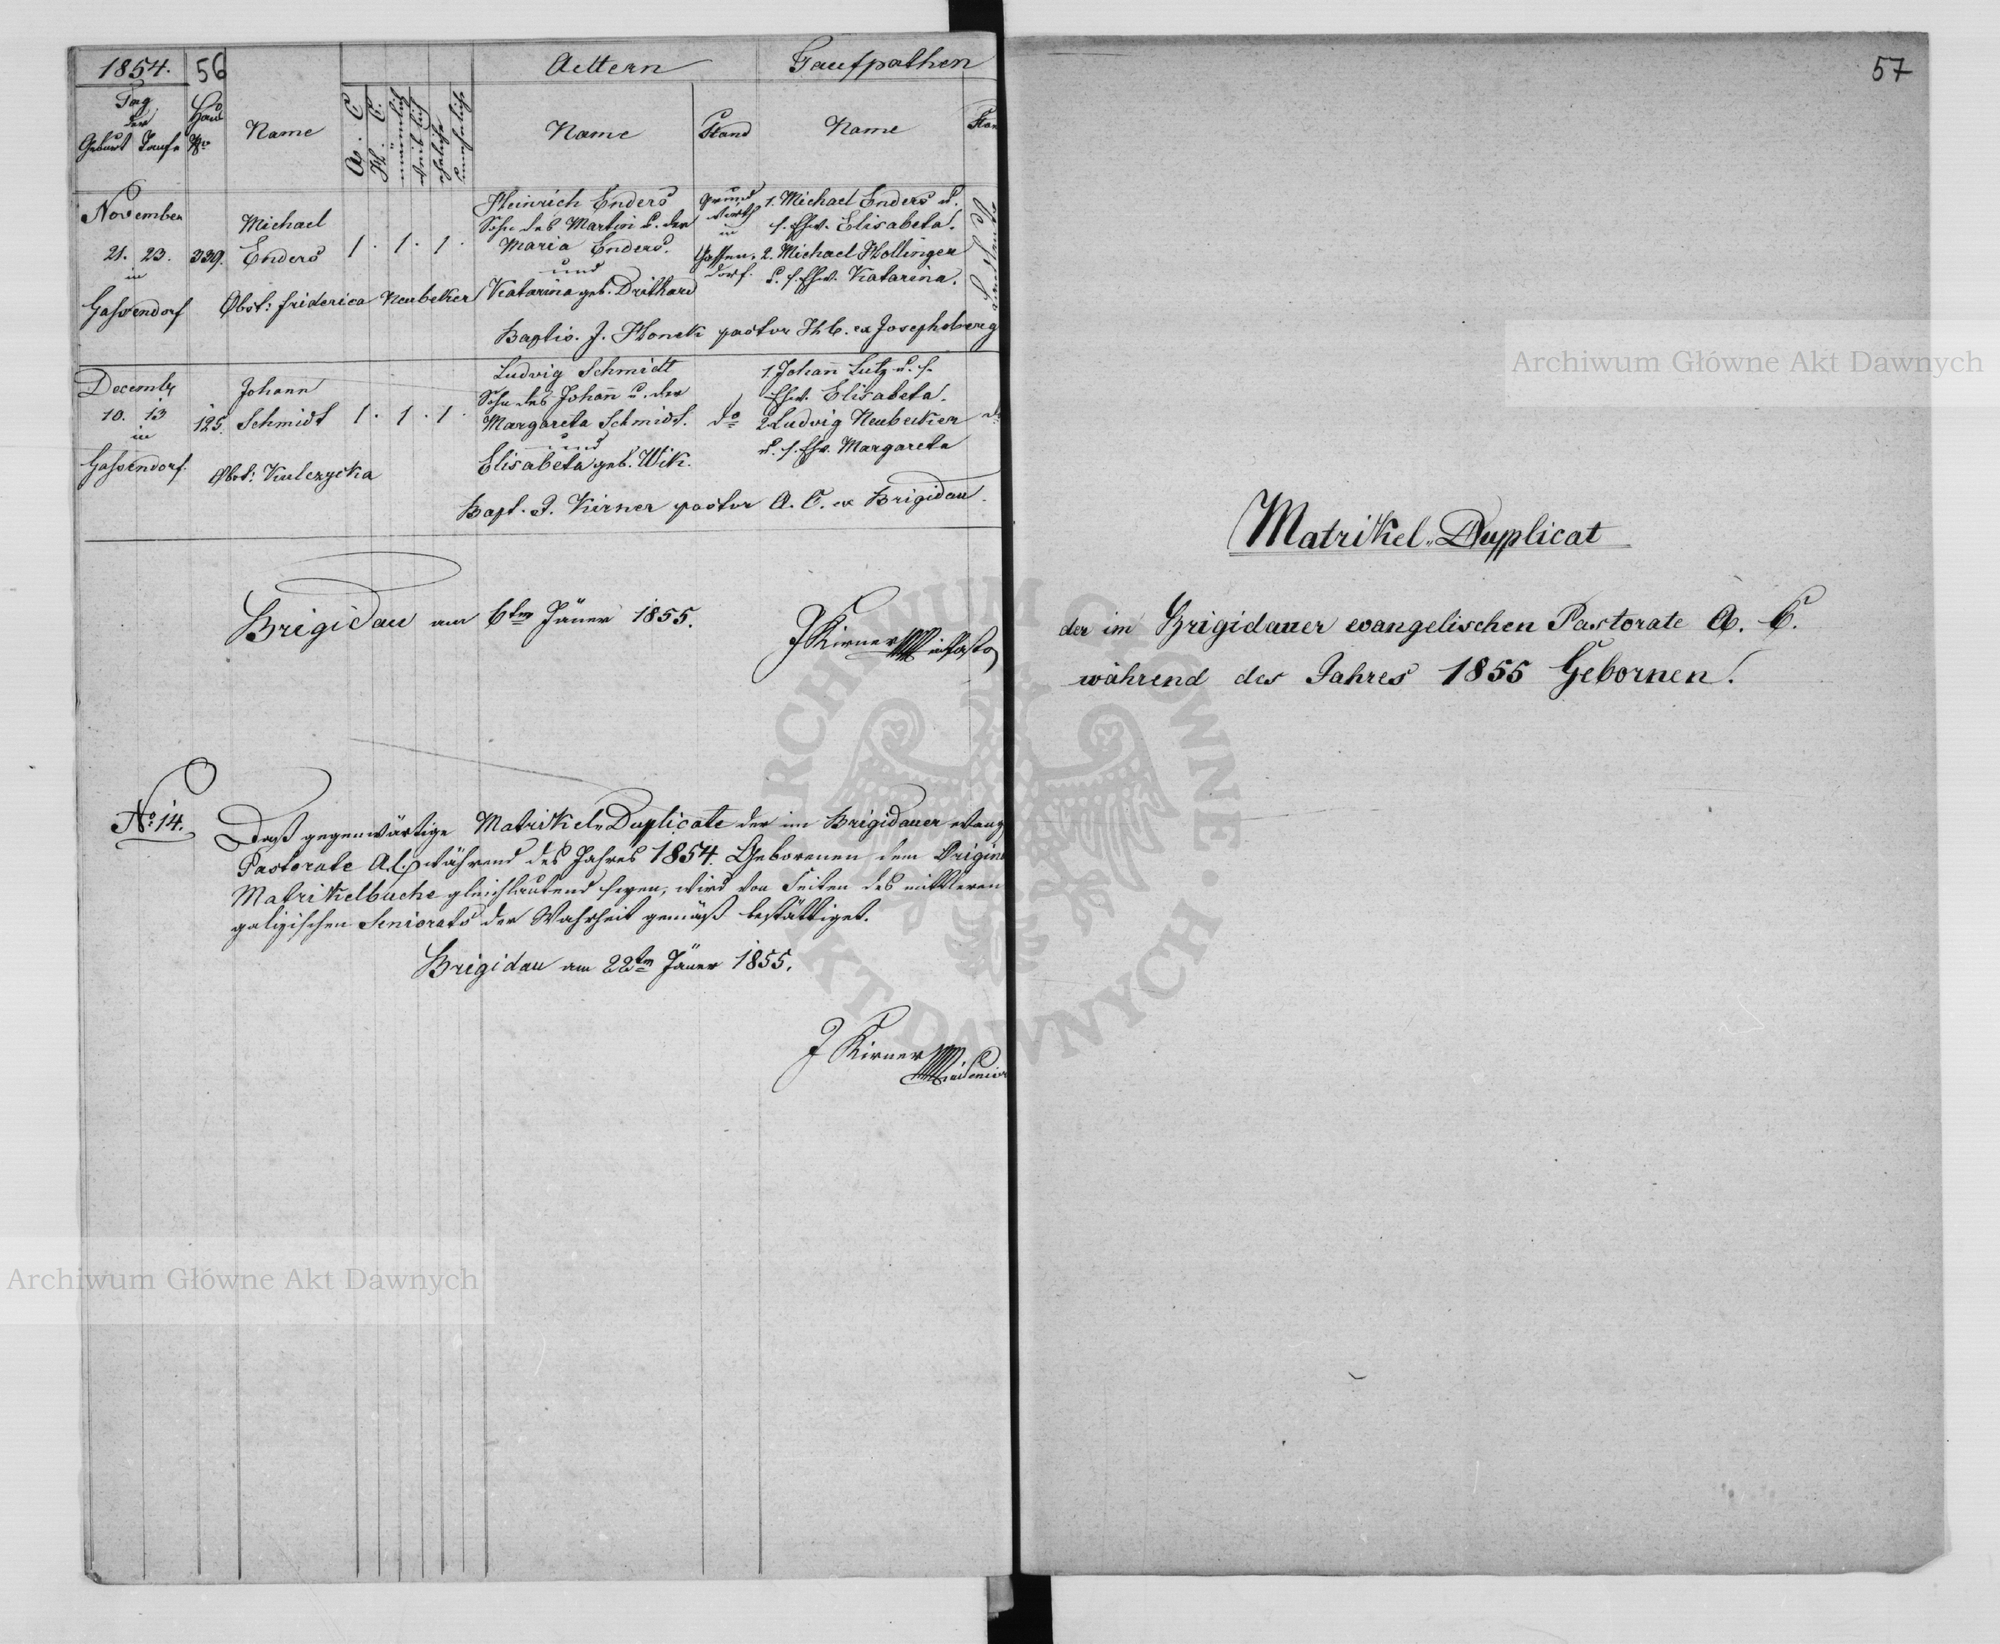 1854. 56
Aeltern Taufpathen
Tag
der
Geburt Taufe
Haus
Nro
Name
A. C.
H. C.
männlich
weiblich
eheliche
uneheliche
Name
Stand
Name
Stan
November
21. 23.
in
Gassendorf
339.
Michael
Enders
1. 1. 1.
Obst: friderica Neubeker
Heinrich Enders
Sohn des Martin u. der
Maria Enders.
und
Katarina geb.
Grund
wirth
in
Gassen.
dorf.
1. Michael Enders u.
s. Ehw. Elisabeta!
2. Michael Hollinger
u. s. Ehw. Katarina.
Baptis. J. Honek pastor Hb. ex Josephsberg
Decemb
10. 13
in
Gassendorf.
125.
Johann
Schmidt
1. 1. 1.
Obst: Kulczycka
Ludvig Schmidt
Sohn des Johan̄ u. der
Margareta Schmidt.
und
Elisabeta geb. Wik.
do
1. Johan̄ Lutz u. s.
Ehw. Elisabeta!
2. Ludvig Neubecker
u. s. Ehw. Margareta
Bapt. J. Kirner pastor A. C. ex Brigidau.
Brigidau am 6tn Jäner 1855.
J Kirner
No 14.
Daß gegenwärtige Matrikel„Duplicate der im Brigidauer evang
Pastorate A.C. während des Jahres 1854. Geborenen dem Origin
Matrikelbuche gleichlautend seyen, wird von Seiten des mittleren
galizischen Seniorats der Wahrheit gemäß bestättiget.
Brigidau am 22tn Jäner 1855.
J Kirner
Senior
57
Matrikel„Duplicat
der im Brigidauer evangelischen Pastorate A. C.
während des Jahres 1855 Gebornen!
Archiwum Główne Akt Dawnych
Archiwum Główne Akt Dawnych
ARCHIWUM GŁÓWNE · AKT DAWNYCH ·